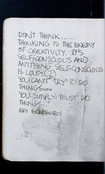 DON'T THINK.....
THINKING IS THE ENEMY
OF CREATIVITY. IT'S
SELF-CONSCIOUS AND
ANYTHING SELF-CONSCIOUS
IS LOUSY.
YOU CAN'T "TRY" TO DO
THINGS....
YOU SIMPLY "MUST" DO
THINGS.
RAY BRADBURY